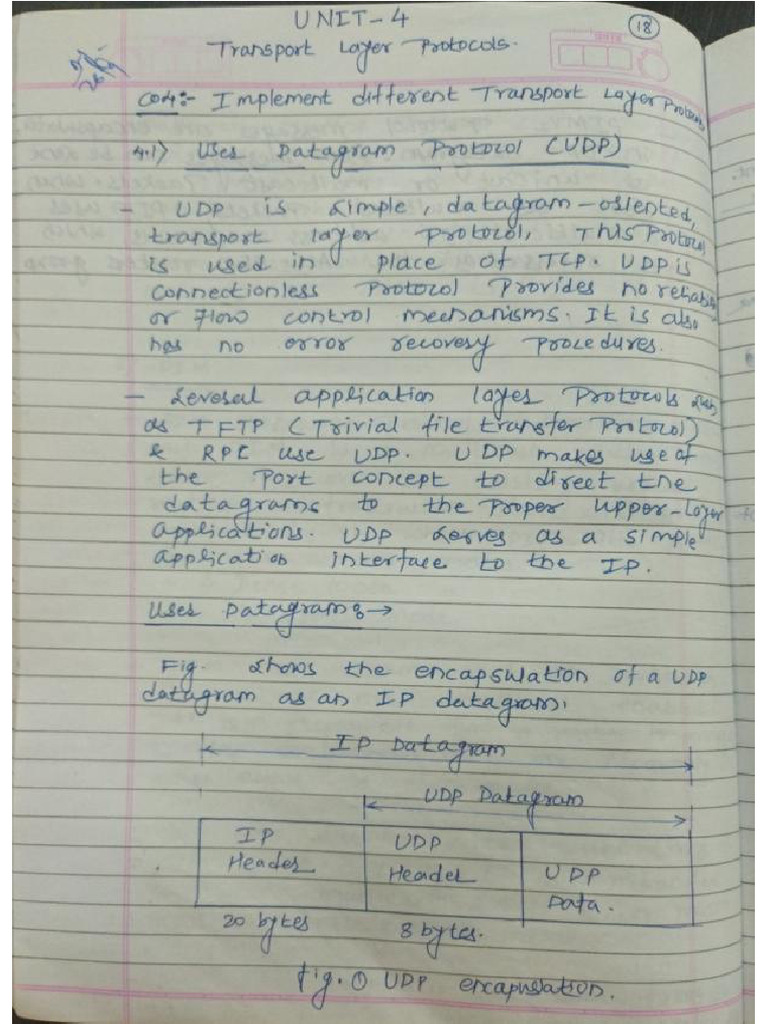 UNIT-4
18
Transport Layer Protocols.
CO4:- Implement different Transport Layer Protocols
4.1) User Datagram Protocol (UDP)
- UDP is simple, datagram-oriented,
transport layer protocol, This Protocol
is used in place of TCP. UDP is
connectionless protocol provides no reliability
or flow control mechanisms. It is also
has no error recovery procedures.
- Several application layer protocols such
as TFTP (Trivial file transfer Protocol)
& RPC use UDP. UDP makes use of
the port concept to direct the
datagrams to the proper upper-layer
applications. UDP serves as a simple
application interface to the IP.
User Datagram :→
Fig. shows the encapsulation of a UDP
datagram as an IP datagram.
IP Datagram
UDP Datagram
IP Header
UDP Header
UDP Data.
20 bytes
8 bytes.
fig. ① UDP encapsulation.